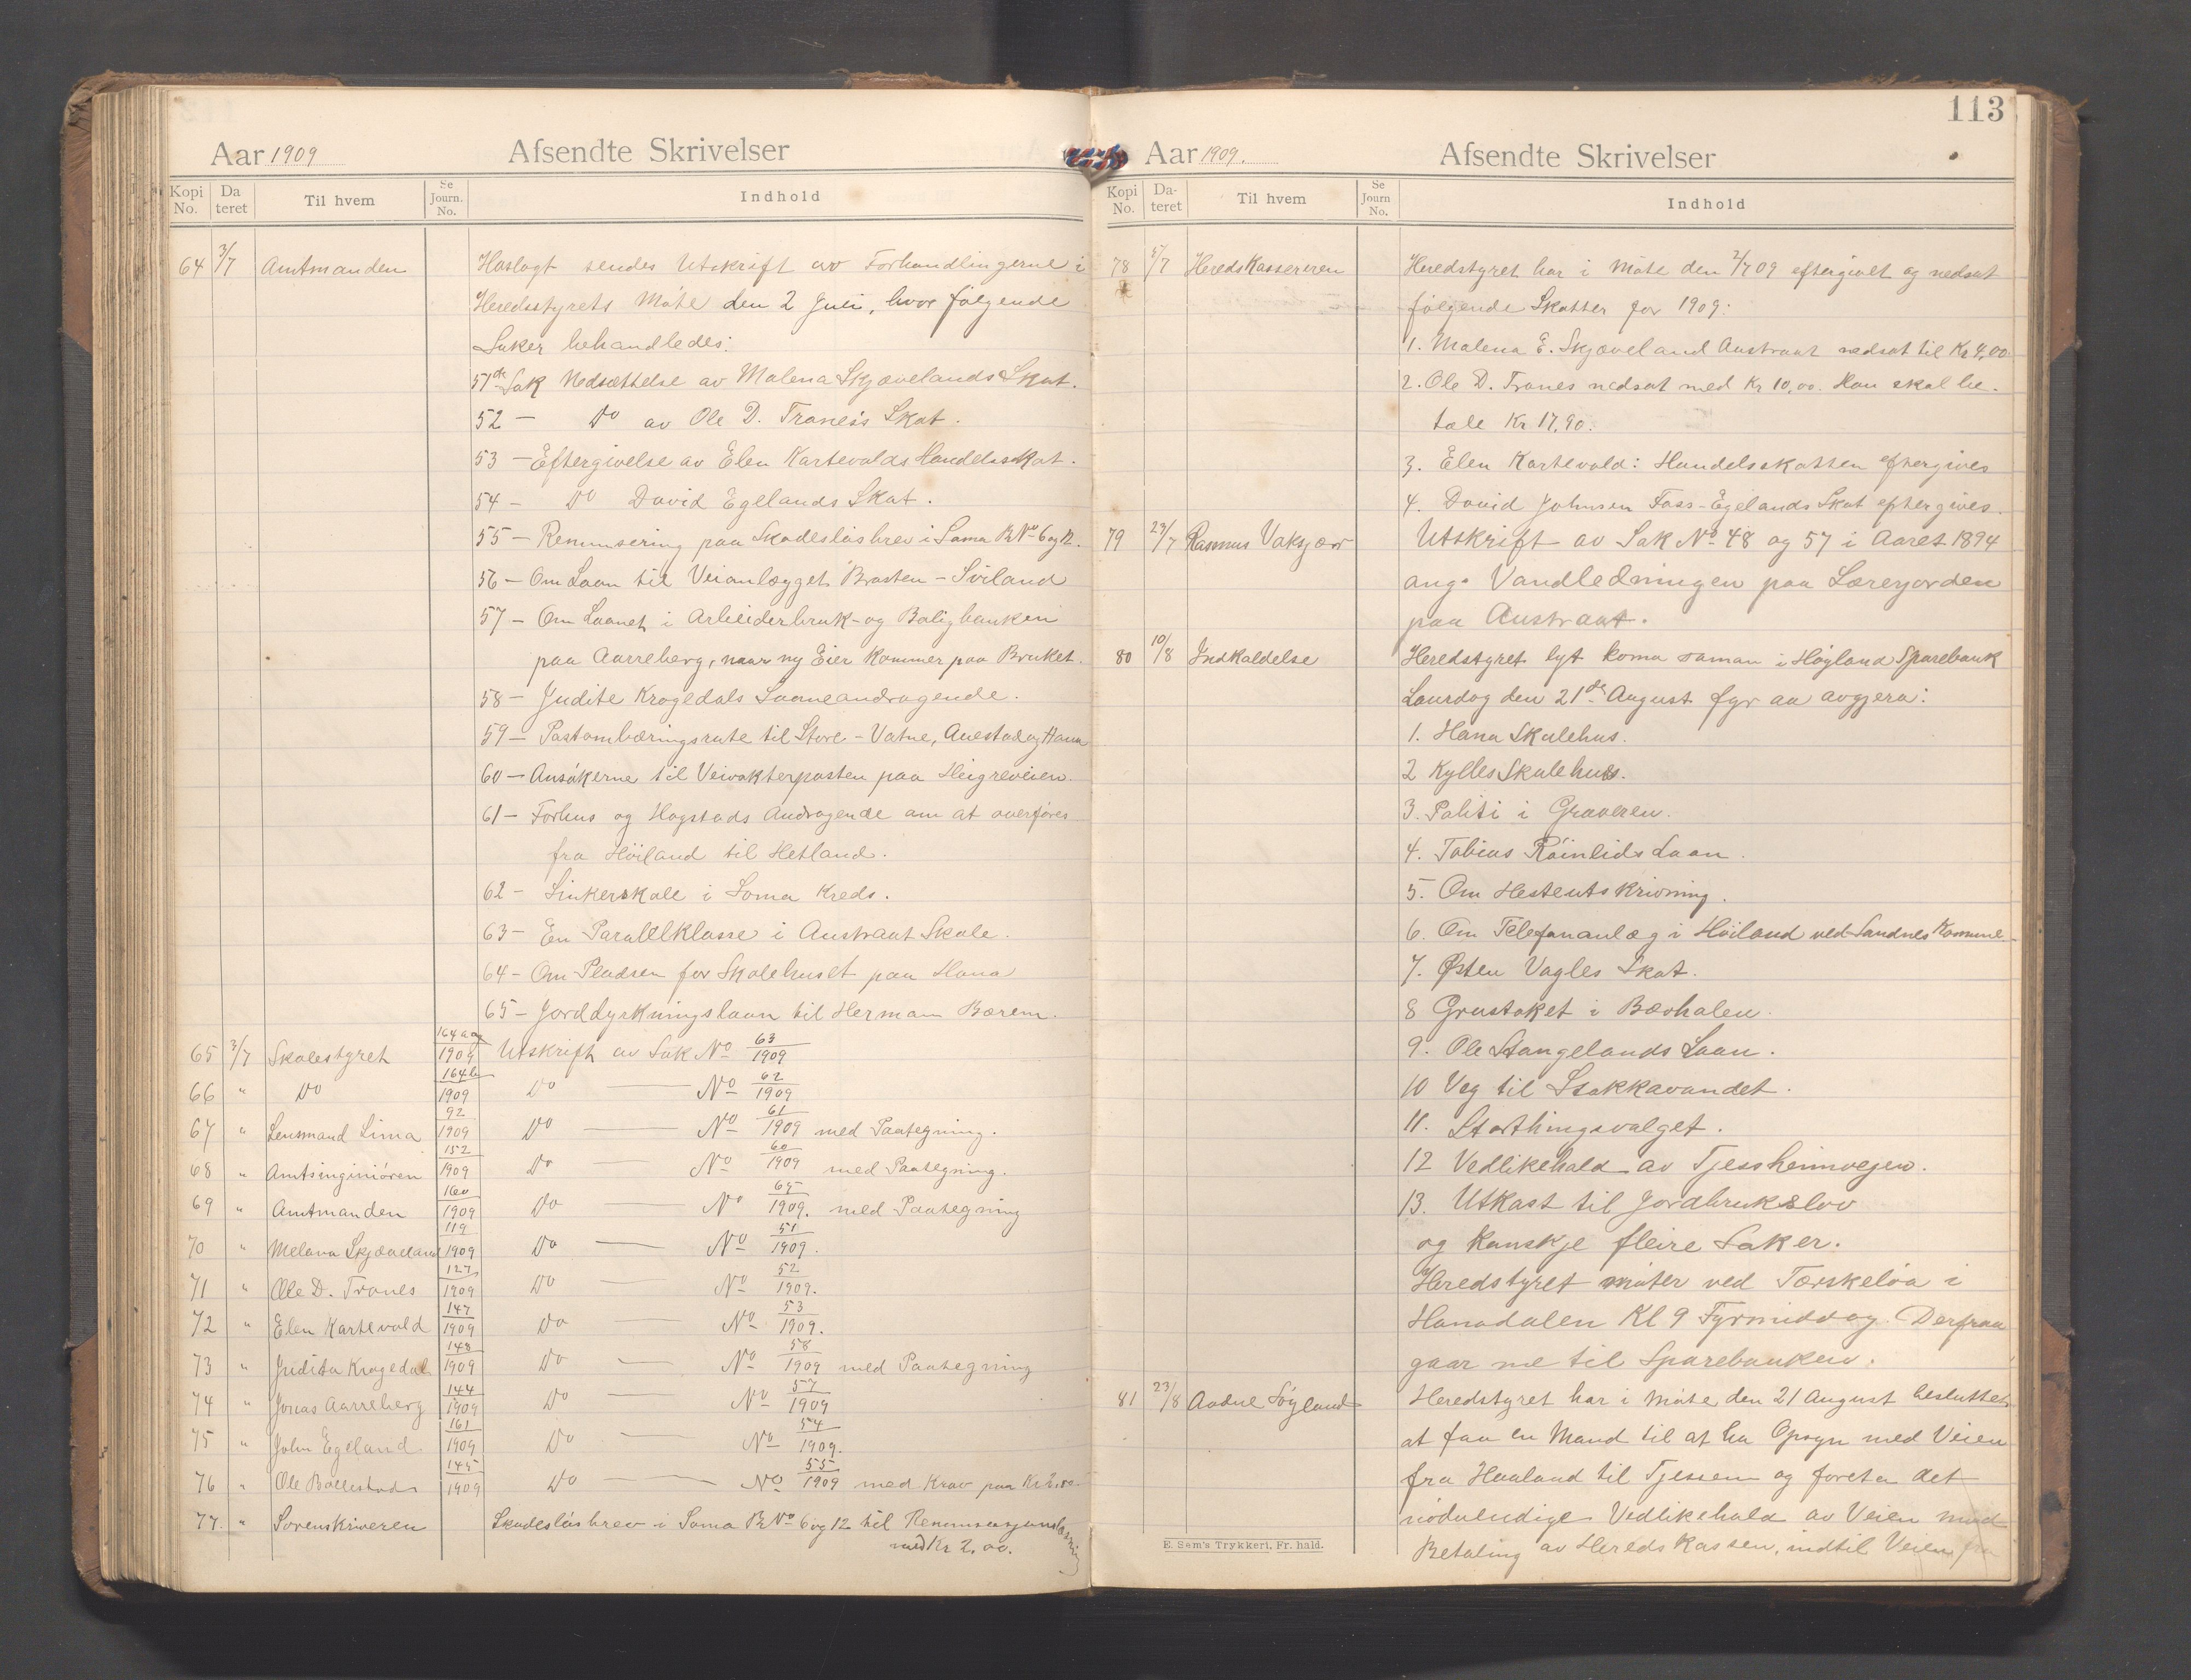 Aar 1909 Afsendte Skrivelser
Kopi No. Da teret Til hvem Se Journ. No. Indhold
64 3/7 Amtmanden Hoslagt sendes Utskrift av Forhandlingerne i
Heredsstyrets Møte den 2 Juli, hvor følgende
Saker behandledes:
51de Sak Nedsættelse av Malena Skjævelands Skat.
52 — Do av Ole D. Tranes's Skat.
53 — Eftergivelse av Elen Kartevolds Handelsskat.
54 — Do David Egelands Skat.
55 — Renunsering paa Skadesløsbrev i Soma B.No 6 og 12.
56 — Om Laan til Veianlægget Brasten - Sviland
57 — Om Laanet i Arbeiderbruk- og Boligbanken
paa Aarreberg, naar ny Eier kommer paa Bruket.
58 — Judite Krogedals Laaneandragende.
59 — Postombæringsrute til Store-Vatne, Auestad og Hana
60 — Ansøkerne til Veivokterposten paa Heigreveien.
61 — Forhus og Hogstads Andragende om at overføres
fra Höiland til Hetland.
62 — Sinkerskole i Soma Kreds.
63 — En Paralelklasse i Austraat Skole.
64 — Om Pladsen for Skolehuset paa Hana
65 — Jorddyrkningslaan til Herman Bærem.
65 3/7 Skolestyret 164 a og/1909 Utskrift av Sak No 63/1909
66 " Do 164b/1909 Do — No 62/1909
67 " Lensmand Lima 92/1909 Do — No 61/1909 med Paategning.
68 " Amtsinginiören 152/1909 Do — No 60/1909 med Paategning.
69 " Amtmanden 160/1909 Do — No 65/1909. med Paategning
70 " Melana Skjæveland 119/1909 Do — No 51/1909.
71 " Ole D. Tranes 127/1909 Do — No 52/1909.
72 " Elen Kartevold 147/1909 Do — No 53/1909.
73 " Judita Krogedal 148/1909 Do — No 58/1909 med Paategning
74 " Jonas Aarreberg 144/1909 Do — No 57/1909
75 " John Egeland 161/1909 Do — No 54/1909.
76 " Ole Bollestad 145/1909 Do — No 55/1909 med Krav paa Kr 2,00.
77. " Sorenskriveren Skadesløsbrev i Soma B No 6 og 12 til
med Kr 2,00.
113
Aar 1909. Afsendte Skrivelser
Kopi No. Da- teret Til hvem Se Journ No. Indhold
78 5/7 Heredskassereren Heredstyret har i Møte den 2/7 09 eftergivet og nedsat
følgende Skatter for 1909:
1. Malena E. Skjæveland Austraat nedsat til Kr 4,00
2. Ole D. Tranes nedsat med Kr 10,00. Han skal be-
tale Kr 17,90.
3. Elen Kartevold: Handelsskatten eftergives
4. David Johnsen Foss-Egelands Skat eftergives.
79 29/7 Rasmus Vaksjær Utskrift av Sak No 48 og 57 i Aaret 1894
ang. Vandledningen paa Lærejorden
paa Austraat.
80 10/8 Indkaldelse Heredstyret lyt koma saman i Høyland Sparebank
Laurdag den 21de August fyr aa avgjera:
1. Hana Skulehus.
2 Kylles Skulehus.
3. Politi i Graveren.
4. Tobias Röinlids Laan.
5. Om Hesteutskrivning.
6. Om Telefonanlæg i Höiland ved Sandnes Kommune
7. Østen Vagles Skat.
8 Grustaket i Bævhalen.
9. Ole Stangelands Laan.
10 Veg til Stokkavandet.
11. Storthingsvalget.
12 Vedlikehald av Tjessheimvejen.
13. Utkast til Jordbrukslov
og kanskje fleire Saker.
Heredstyret møter ved Tærskeløa i
Hanadalen Kl 9 Fyrmiddag. Derfraa
gaar me til Sparebanken.
81 23/8 Aadne Søyland Heredstyret har i Møte den 21 August besluttet
at faa en Mand til at ha Opsyn med Veien
fra Haaland til Tjessem og foreta det
nødvendige Vedlikehald av Veien mod
Betaling av Heredskassen, indtil Veien fra
E. Søm's Trykkeri, Fr. hald.